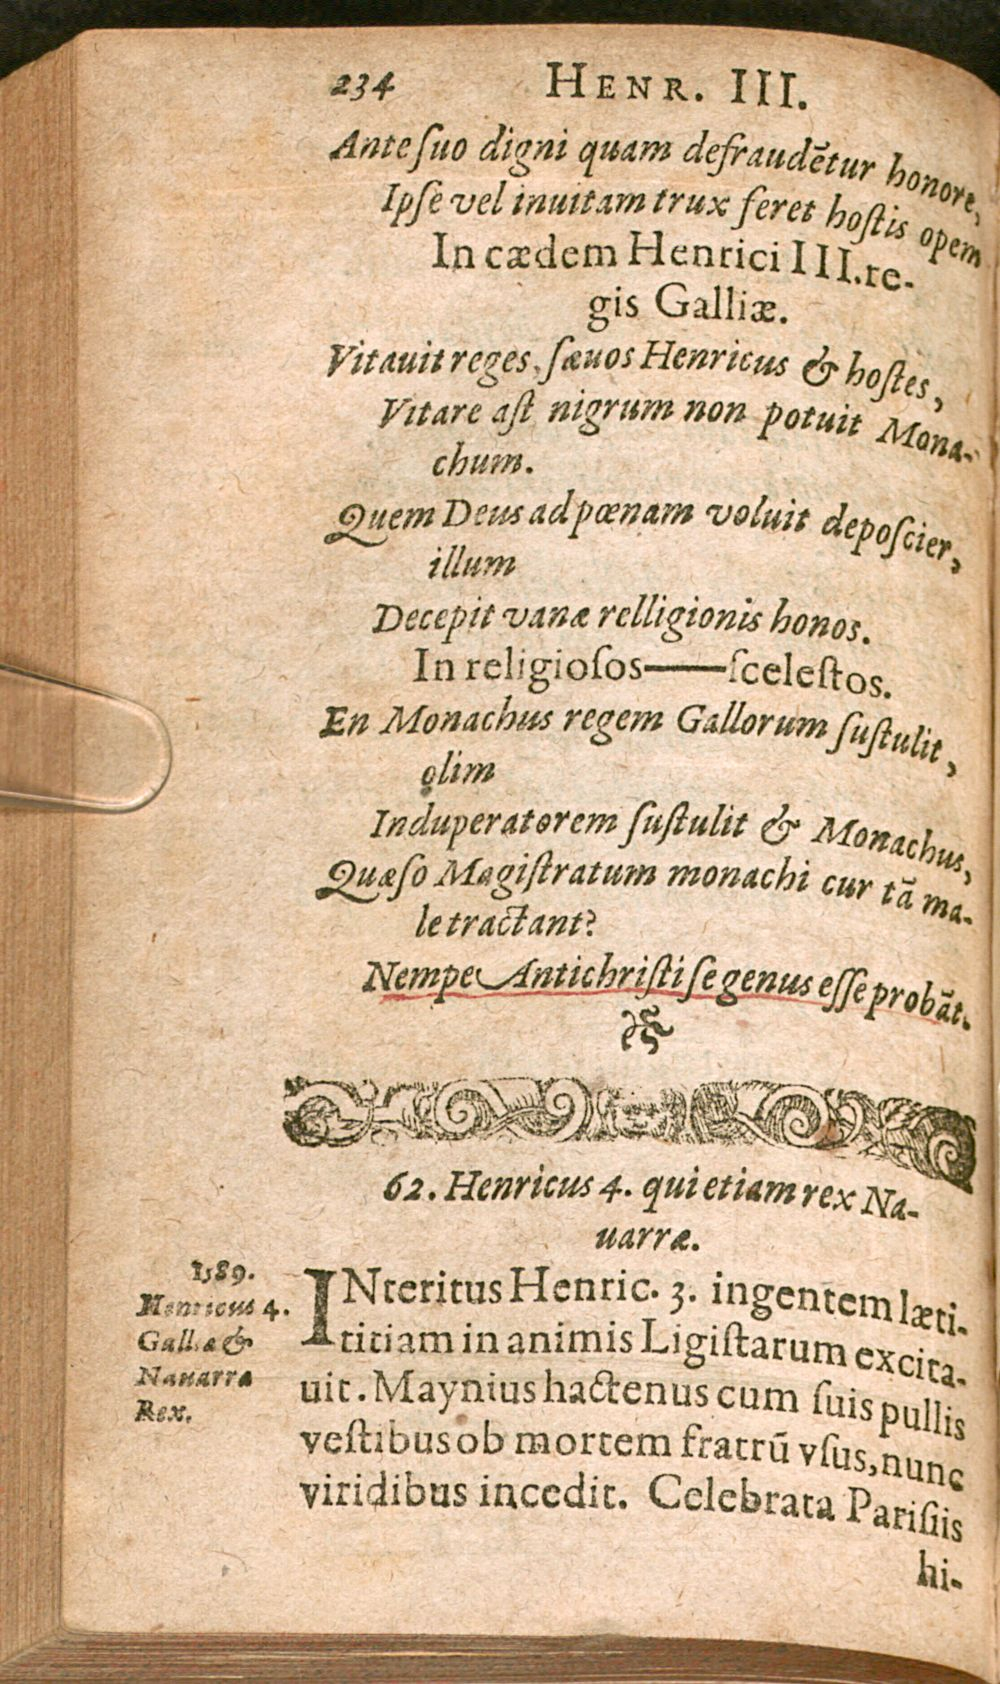 234 HENR. III.
Ante ſuo digni quam defraudētur honore,
Ipſe vel inuitam trux feret hoſtis opem
In cædem Henrici III. re-
gis Galliæ.
Vitauit reges, ſæuos Henricus & hoſtes,
Vitare aſt nigrum non potuit Mona-
chum.
Quem Deus ad pœnam voluit depoſcier,
illum
Decepit vanæ relligionis honos.
In religioſos——ſceleſtos.
En Monachus regem Gallorum ſuſtulit,
olim
Induperatorem ſuſtulit & Monachus,
Quæſo Magiſtratum monachi cur tā ma-
le tractant?
Nempe Antichriſti ſe genus eſſe probāt.
62. Henricus 4. qui etiam rex Na-
uarræ.
1589.
Henricus 4.
Galliæ &
Nauarra
Rex.
INteritus Henric. 3. ingentem læti-
titiam in animis Ligiſtarum excita-
uit. Maynius hactenus cum ſuis pullis
veſtibus ob mortem fratrū vſus, nunc
viridibus incedit. Celebrata Pariſiis
hi-